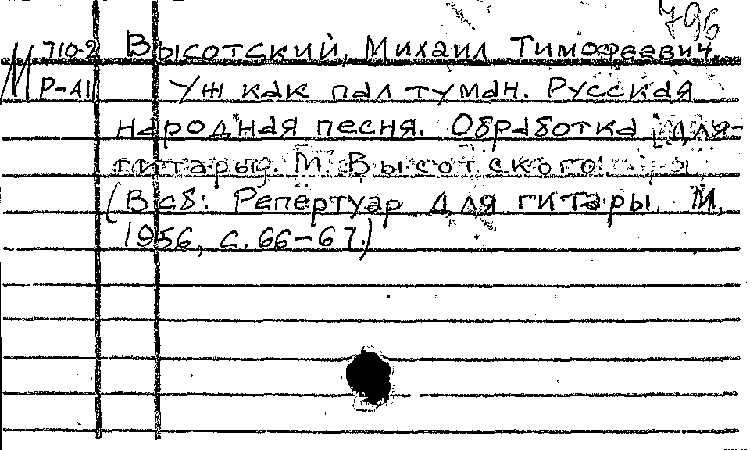 796
М 710-2 Высотский, Михаил Тимофеевич.
Р-41 Уж как пал туман. Русская
народная песня. Обработка [для
гитары]. М. Высотского.
(В сб: Репертуар для гитары. М.
1956, с. 66-67.)